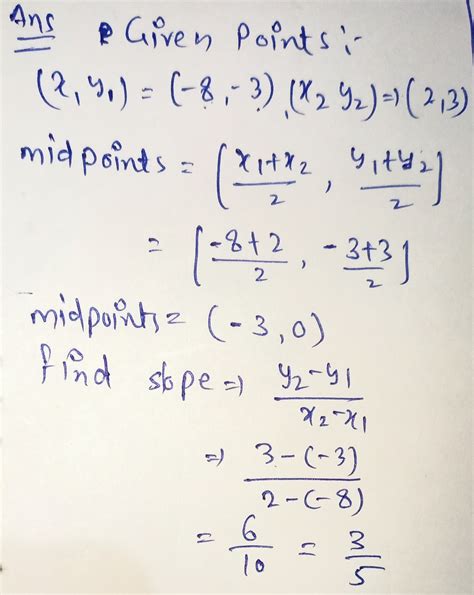 Ans Given Points :-
(x, y₁) = (-8, -3) (x₂ y₂) => (2,3)
midpoints = [x₁+x₂/2, y₁+y₂/2]
= [-8+2/2, -3+3/2]
midpoints = (-3, 0)
find slope => y₂-y₁/x₂-x₁
=> 3-(-3)/2-(-8)
= 6/10 = 3/5